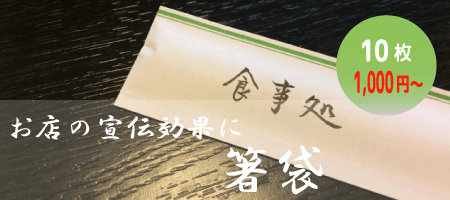 10枚
1,000円~
食事処
お店の宣伝効果に
箸袋